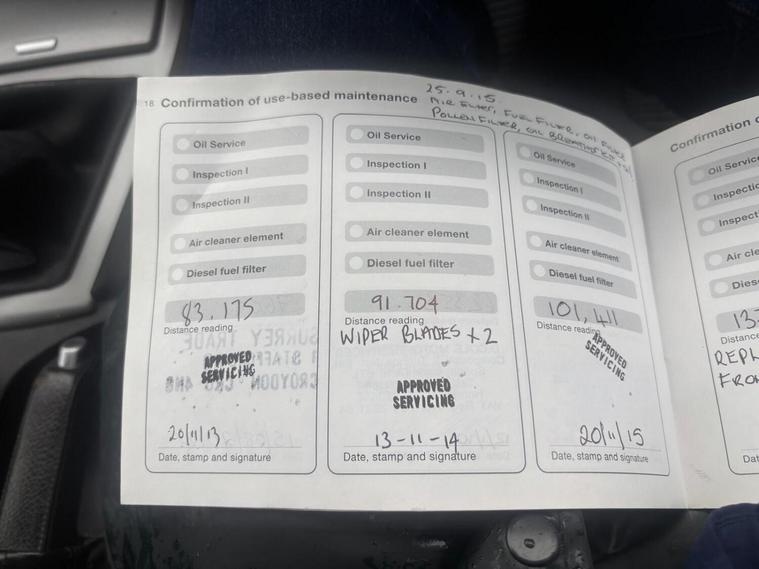 18 Confirmation of use-based maintenance
25.9.15
AIR FILTER, FUEL FILTER, OIL FILTER
POLLEN FILTER, OIL
Oil Service
Inspection I
Inspection II
Air cleaner element
Diesel fuel filter
83.175
Distance reading
APPROVED
SERVICING
20/11/13
Date, stamp and signature
Oil Service
Inspection I
Inspection II
Air cleaner element
Diesel fuel filter
91.704
Distance reading
WIPER BLADES x 2
APPROVED
SERVICING
13-11-14
Date, stamp and signature
Oil Service
Inspection I
Inspection II
Air cleaner element
Diesel fuel filter
101,411
Distance reading
APPROVED
SERVICING
20/11/15
Date, stamp and signature
Confirmation
Oil Service
Inspectio
Inspect
Air cle
Dies
13
Distance
REPL
FRO
Dat